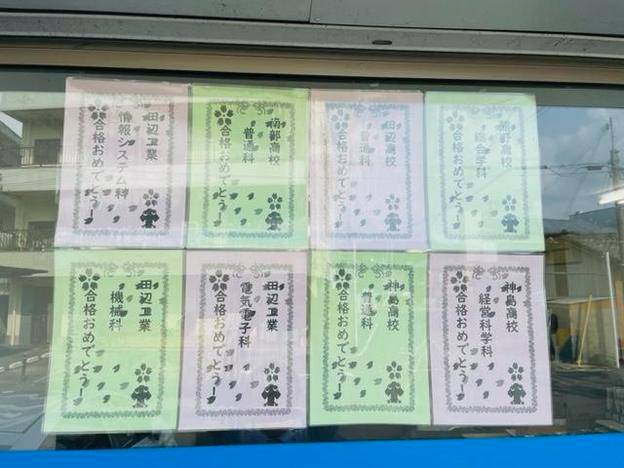 田辺工業
情報システム科
合格おめでとう!
南部高校
普通科
合格おめでとう!
田辺高校
普通科
合格おめでとう!
熊野高校
総合学科
合格おめでとう!
田辺工業
機械科
合格おめでとう!
田辺工業
電気電子科
合格おめでとう!
神島高校
普通科
合格おめでとう!
神島高校
経営科学科
合格おめでとう!